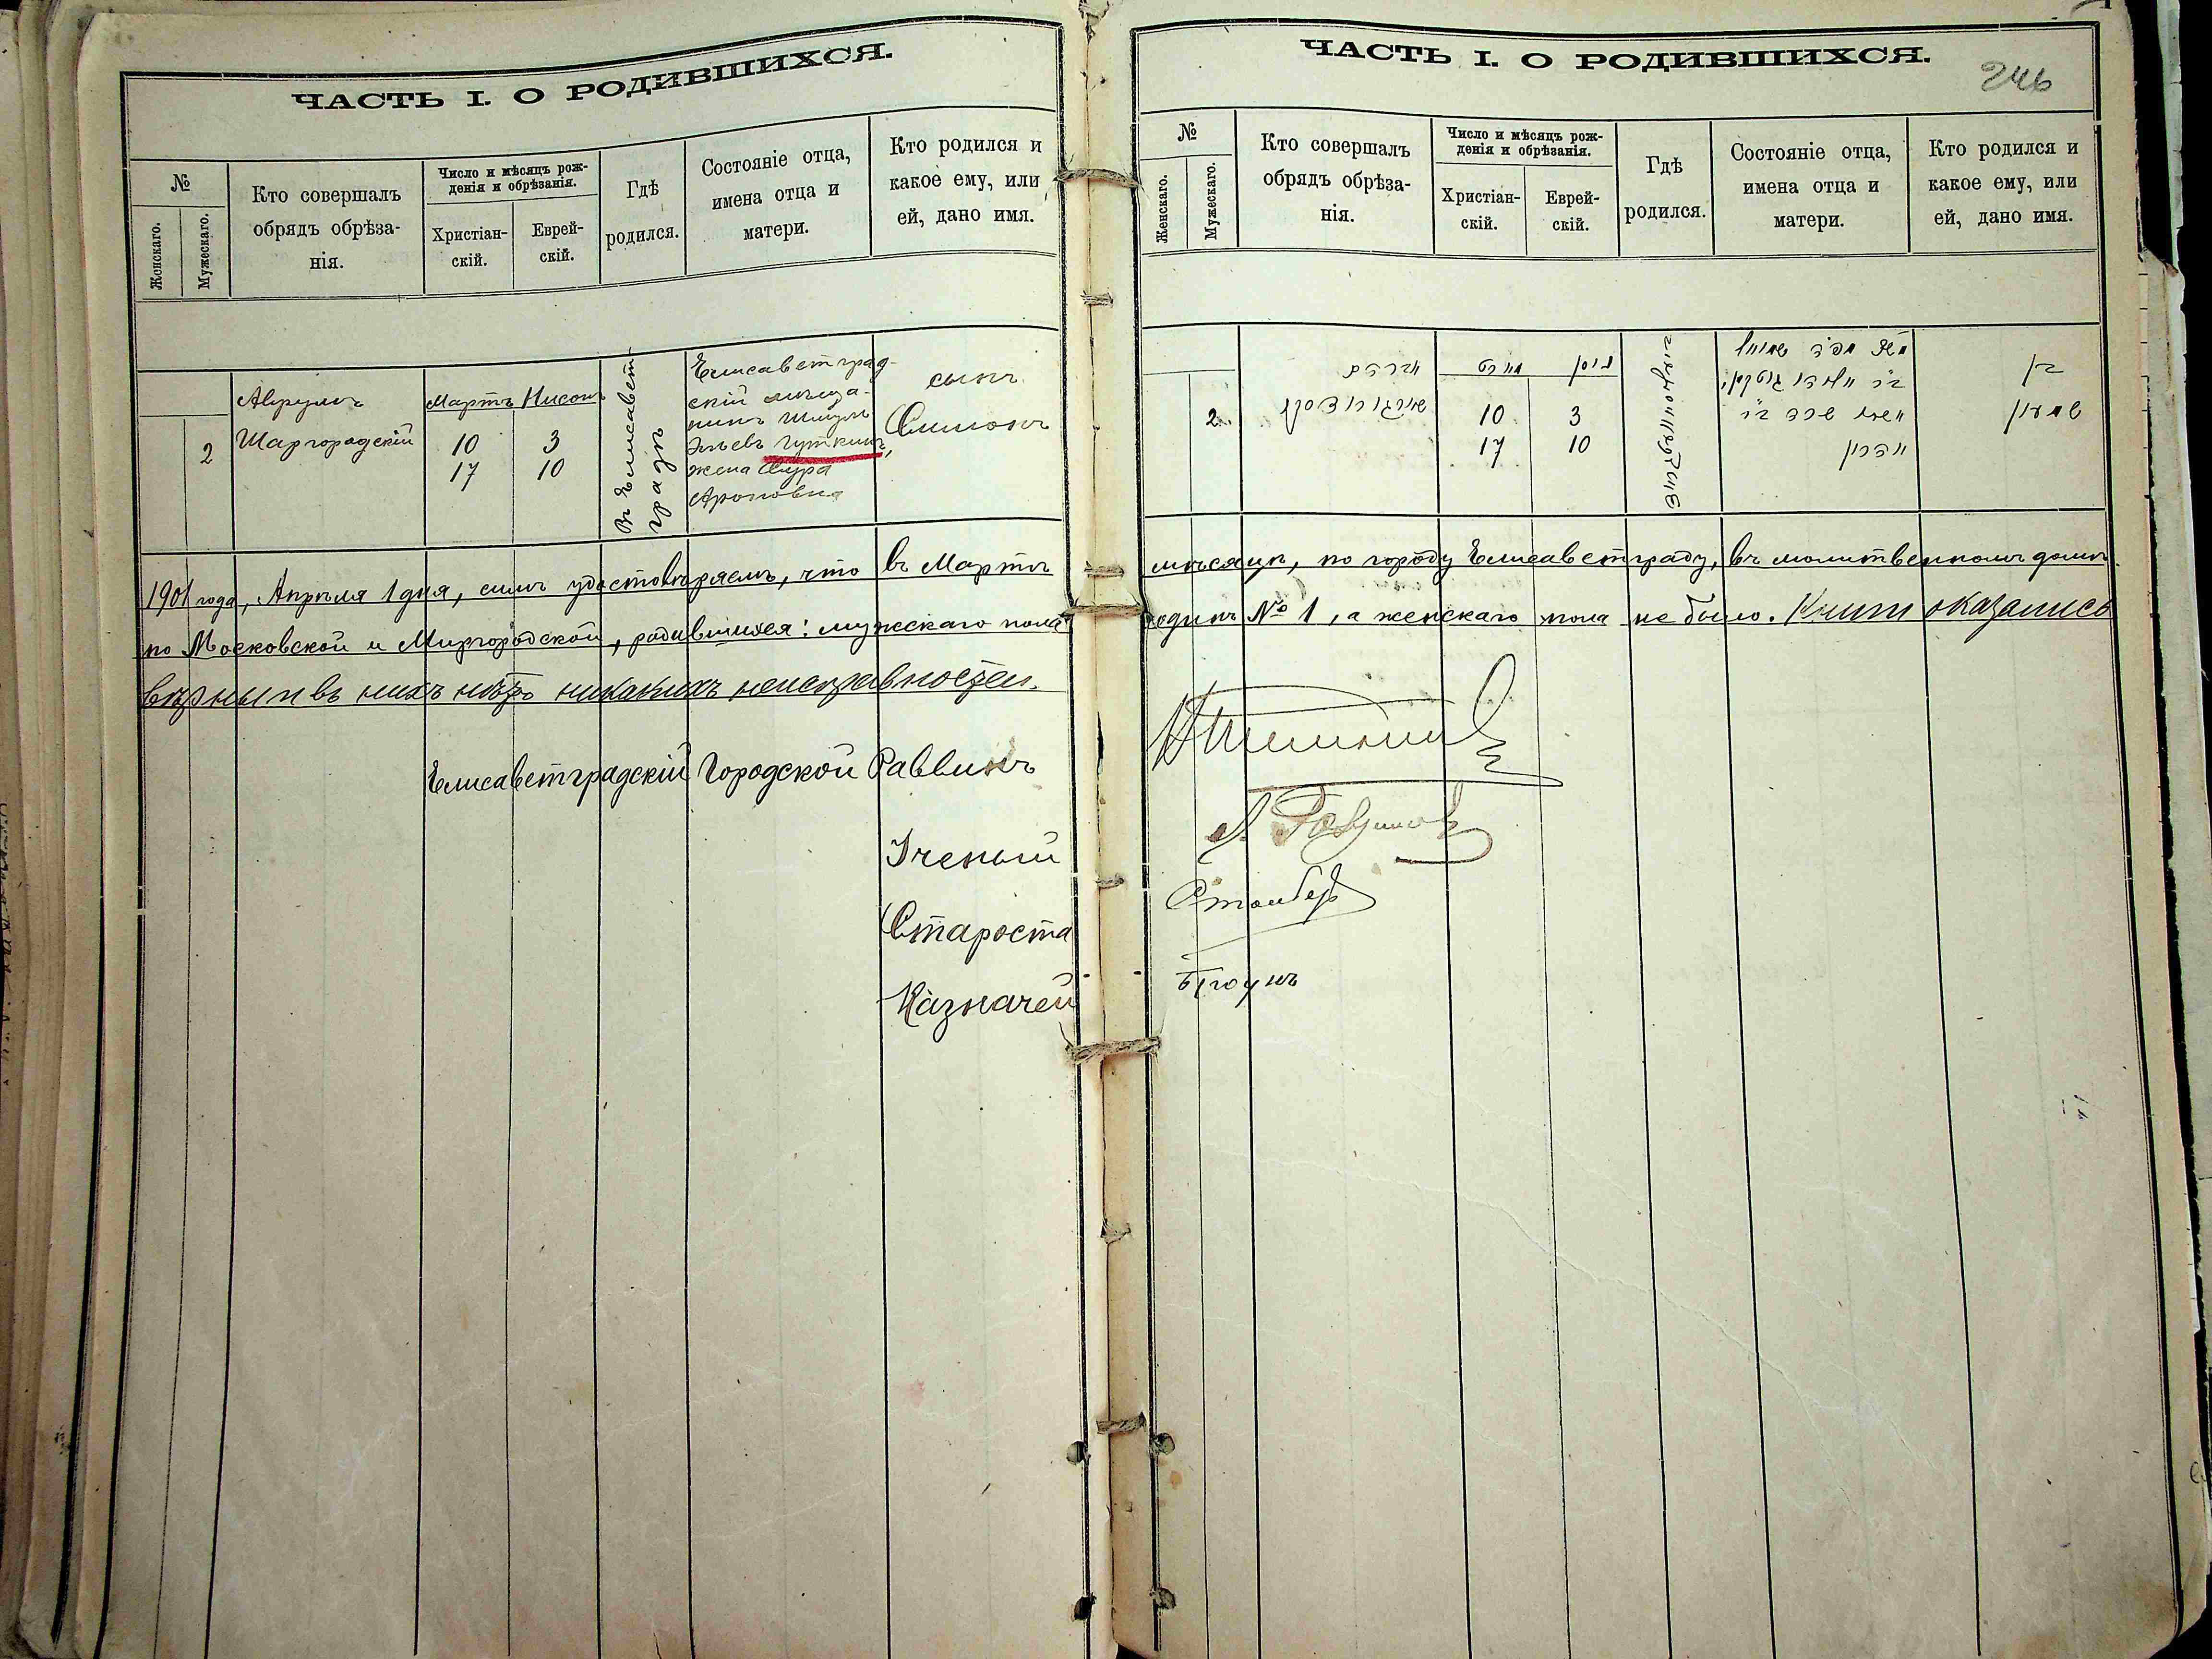 ЧАСТЬ I. О РОДИВШИХСЯ.
№
Женскаго.
Мужескаго.
Кто совершалъ
обрядъ обрѣза-
нія.
Число и мѣсяцъ рож-
денія и обрѣзанія.
Христіан-
скій.
Еврей-
скій.
Гдѣ
родился.
Состояніе отца,
имена отца и
матери.
Кто родился и
какое ему, или
ей, дано имя.
2
Аврумъ
Шаргородскій
Мартъ
10
17
Нисонъ
3
10
Въ Елисавет-
градѣ
Елисаветград-
скій мѣща-
нинъ Шмуль
Эльевъ Гуткинъ,
жена Сура
Ароновна
сынъ
Симонъ
1901 года, Апрѣля 1 дня, симъ удостовѣряемъ, что въ Мартѣ
по Московской и Миргородской, родившихся: мужескаго пола
вѣрны и въ нихъ нѣтъ никакихъ неисправностей.
Елисаветградскій Городской Раввинъ
Ученый
Староста
Казначей
ЧАСТЬ I. О РОДИВШИХСЯ.
246
№
Женскаго.
Мужескаго.
Кто совершалъ
обрядъ обрѣза-
нія.
Число и мѣсяцъ рож-
денія и обрѣзанія.
Христіан-
скій.
Еврей-
скій.
Гдѣ
родился.
Состояніе отца,
имена отца и
матери.
Кто родился и
какое ему, или
ей, дано имя.
2
מארט
10
17
ניסן
3
10
בן
שמעון
мѣсяцѣ, по городу Елисаветграду, въ молитвенномъ домѣ
одинъ № 1, а женскаго пола не было. Книги оказались